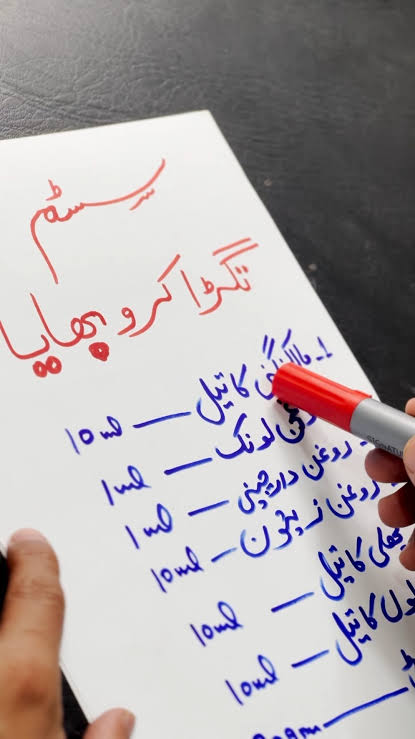 سسٹم
تگڑا کرو بھایا
1- مالکنگنی کا تیل — 10ml
روغن لونگ — 1ml
روغن دارچینی — 1ml
روغن زیتون — 10ml
کا تیل — 10ml
کا تیل — 10ml